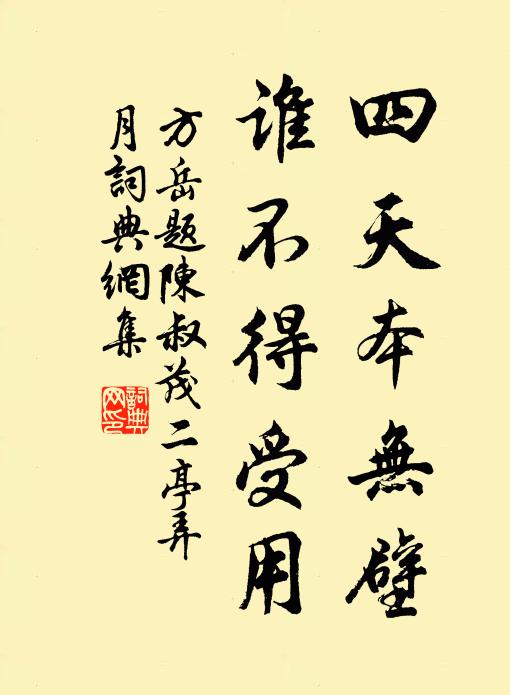 四天本無壁
誰不得受用
方岳題陳叔茂二亭弄
月詞典網集
詞典
网印